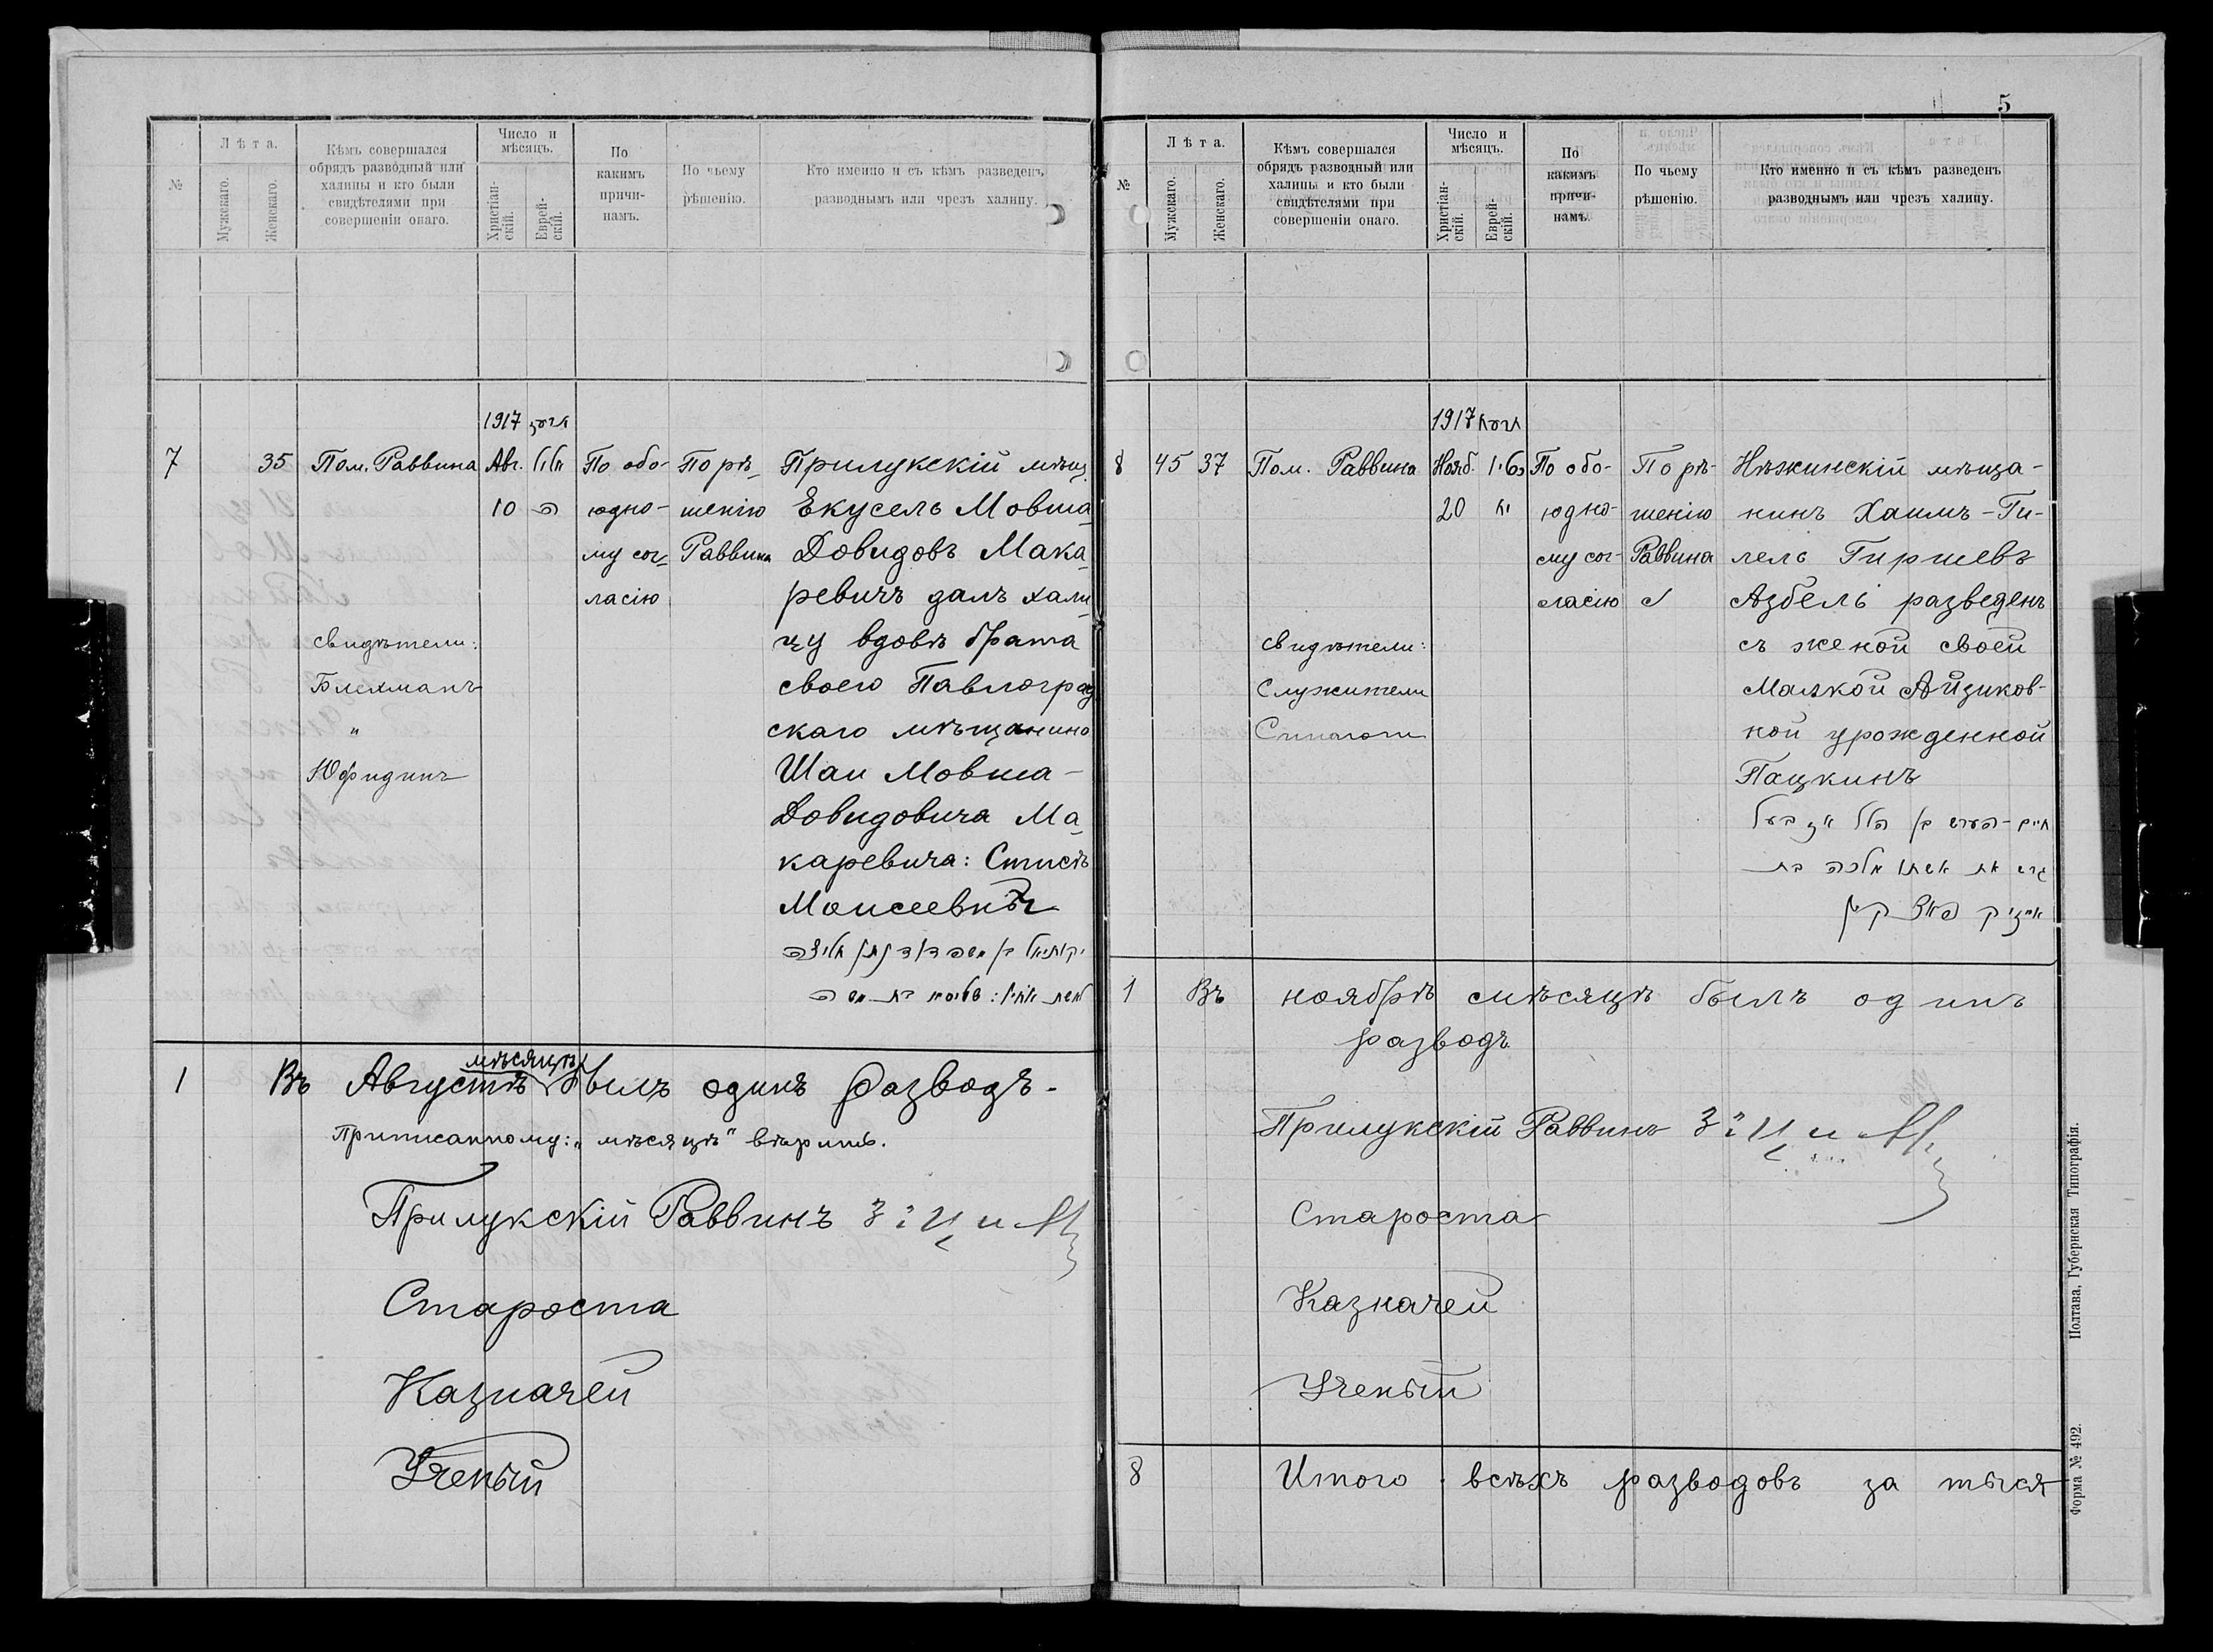 №
Лѣта.
Мужскаго.
Женскаго.
Кѣмъ совершался
обрядъ разводный или
халицы и кто были
свидѣтелями при
совершеніи онаго.
Число и
мѣсяцъ.
Христіан-
скій.
Еврей-
скій.
По
какимъ
причи-
намъ.
По чьему
рѣшенію.
Кто именно и съ кѣмъ разведенъ
разводнымъ или чрезъ халицу.
1917
7
35
Пом. Раввина
Авг.
10
По обо-
юдно-
му сог-
ласію
По рѣ-
шенію
Раввина
Прилукскій мѣщ.
Екусель Мовша
Довидовъ Мака-
ревичъ далъ хали
цу вдовѣ брата
своего Павлоград
скаго мѣщанина
Шаи Мовша-
Довидовича Ма-
каревича:
Моисеевнѣ
свидѣтели:
Блехманъ
"
Юфидинъ
1 Въ Августѣ мѣсяцѣ былъ одинъ разводъ.
Приписанному: „мѣсяцѣ" вѣрить.
Прилукскій Раввинъ
Староста
Казначей
Ученый
5
№
Лѣта.
Мужскаго.
Женскаго.
Кѣмъ совершался
обрядъ разводный или
халицы и кто были
свидѣтелями при
совершеніи онаго.
Число и
мѣсяцъ.
Христіан-
скій.
Еврей-
скій.
По
какимъ
причи-
намъ.
По чьему
рѣшенію.
Кто именно и съ кѣмъ разведенъ
разводнымъ или чрезъ халицу.
1917
8
45
37
Пом. Раввина
Нояб.
20
По обо-
юдно-
му сог-
ласію
По рѣ-
шенію
Раввина
Нѣжинскій мѣща-
нинъ Хаимъ-Ги-
лель Гиршевъ
Азбель разведенъ
съ женой своей
Малкой Айзиков-
ной урожденной
Пацкинъ
свидѣтели:
Служители
Синагоги
חיים הלל
גרש את אשתו מלכה בת
אייזיק פאצקין
1 Въ ноябрѣ мѣсяцѣ былъ одинъ
разводъ
Прилукскій Раввинъ
Староста
Казначей
Ученый
8 Итого всѣхъ разводовъ за тыся
Полтава, Губернская Типографія.
Форма № 492.